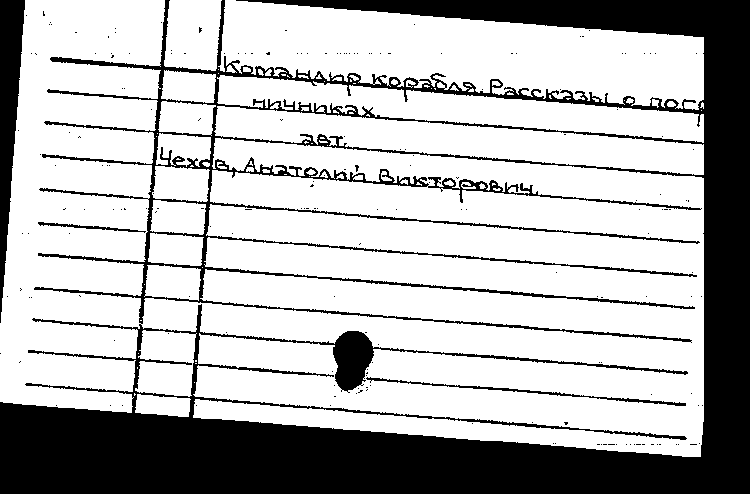 Командир корабля. Рассказы о погр
ничниках.
авт.
Чехов, Анатолий Викторович.